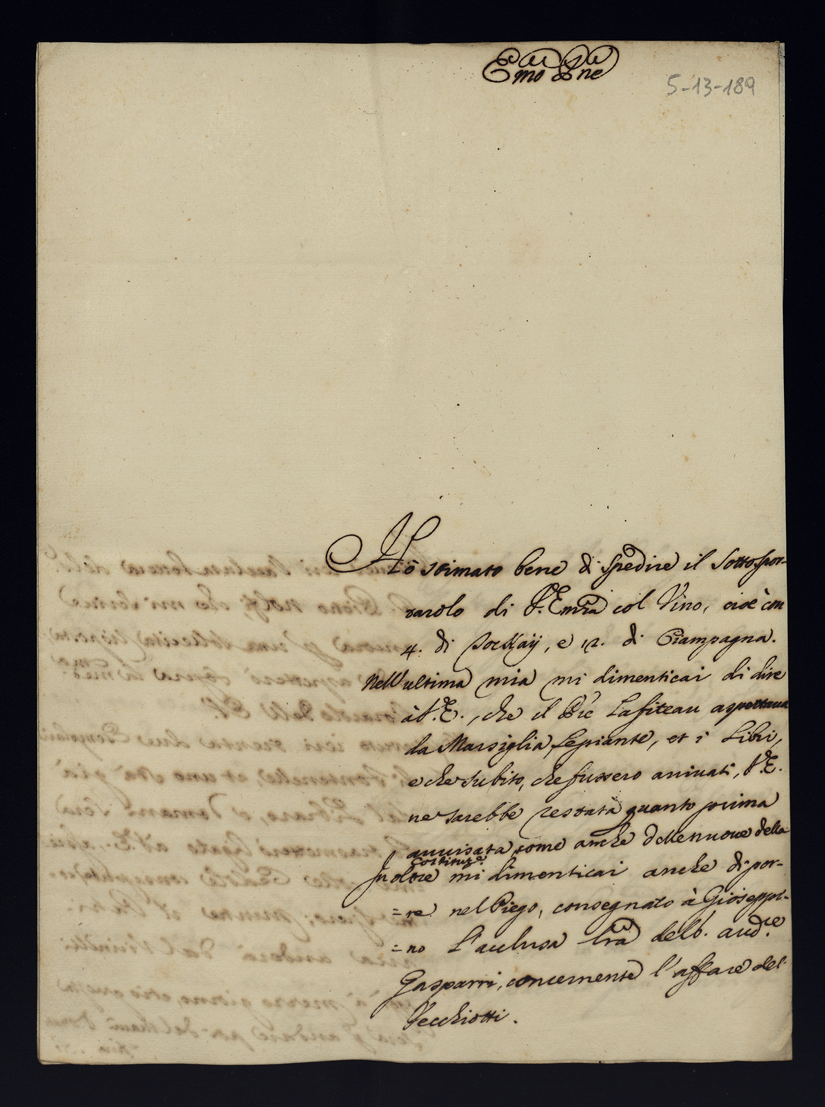 Emo Sne
5-13-189
Hò stimato bene di spedire il Sottospor-
tarolo di V. Emza col Vino, cioè con
4. di Tockaÿ, e 12. di Ciampagna.
Nell'ultima mia mi dimenticai di dire
à V.E., che il Pre Lafiteau aspettava
da Marsiglia le piante, et i Libri,
e che subito, che fussero arrivati, V.E.
ne sarebbe restata quanto prima
avvisata come anche delle nuove della
Costituze
Inoltre mi dimenticai anche di por-
=re nel Piego, consegnato à Gioseppi-
=no l'acclusa lra dell'. Aud.re
Gasparri, concernente l'affare del
Vecchiotti.